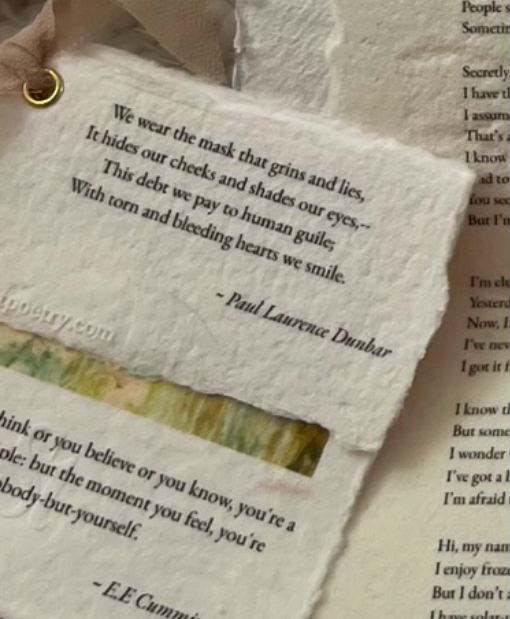 We wear the mask that grins and lies,
It hides our cheeks and shades our eyes,--
This debt we pay to human guile;
With torn and bleeding hearts we smile.
~ Paul Laurence Dunbar
poetry.com
think or you believe or you know, you're a
but the moment you feel, you're
body-but-yourself.
~ E.E
People
Secretly
I have
I assum
That's
I know
to
But I'm
I'm
Yesterd
Now, I
I've nev
I got it
I know
But some
I wonder
I've got a
I'm afraid
Hi, my nam
I enjoy froz
But I don't
I have